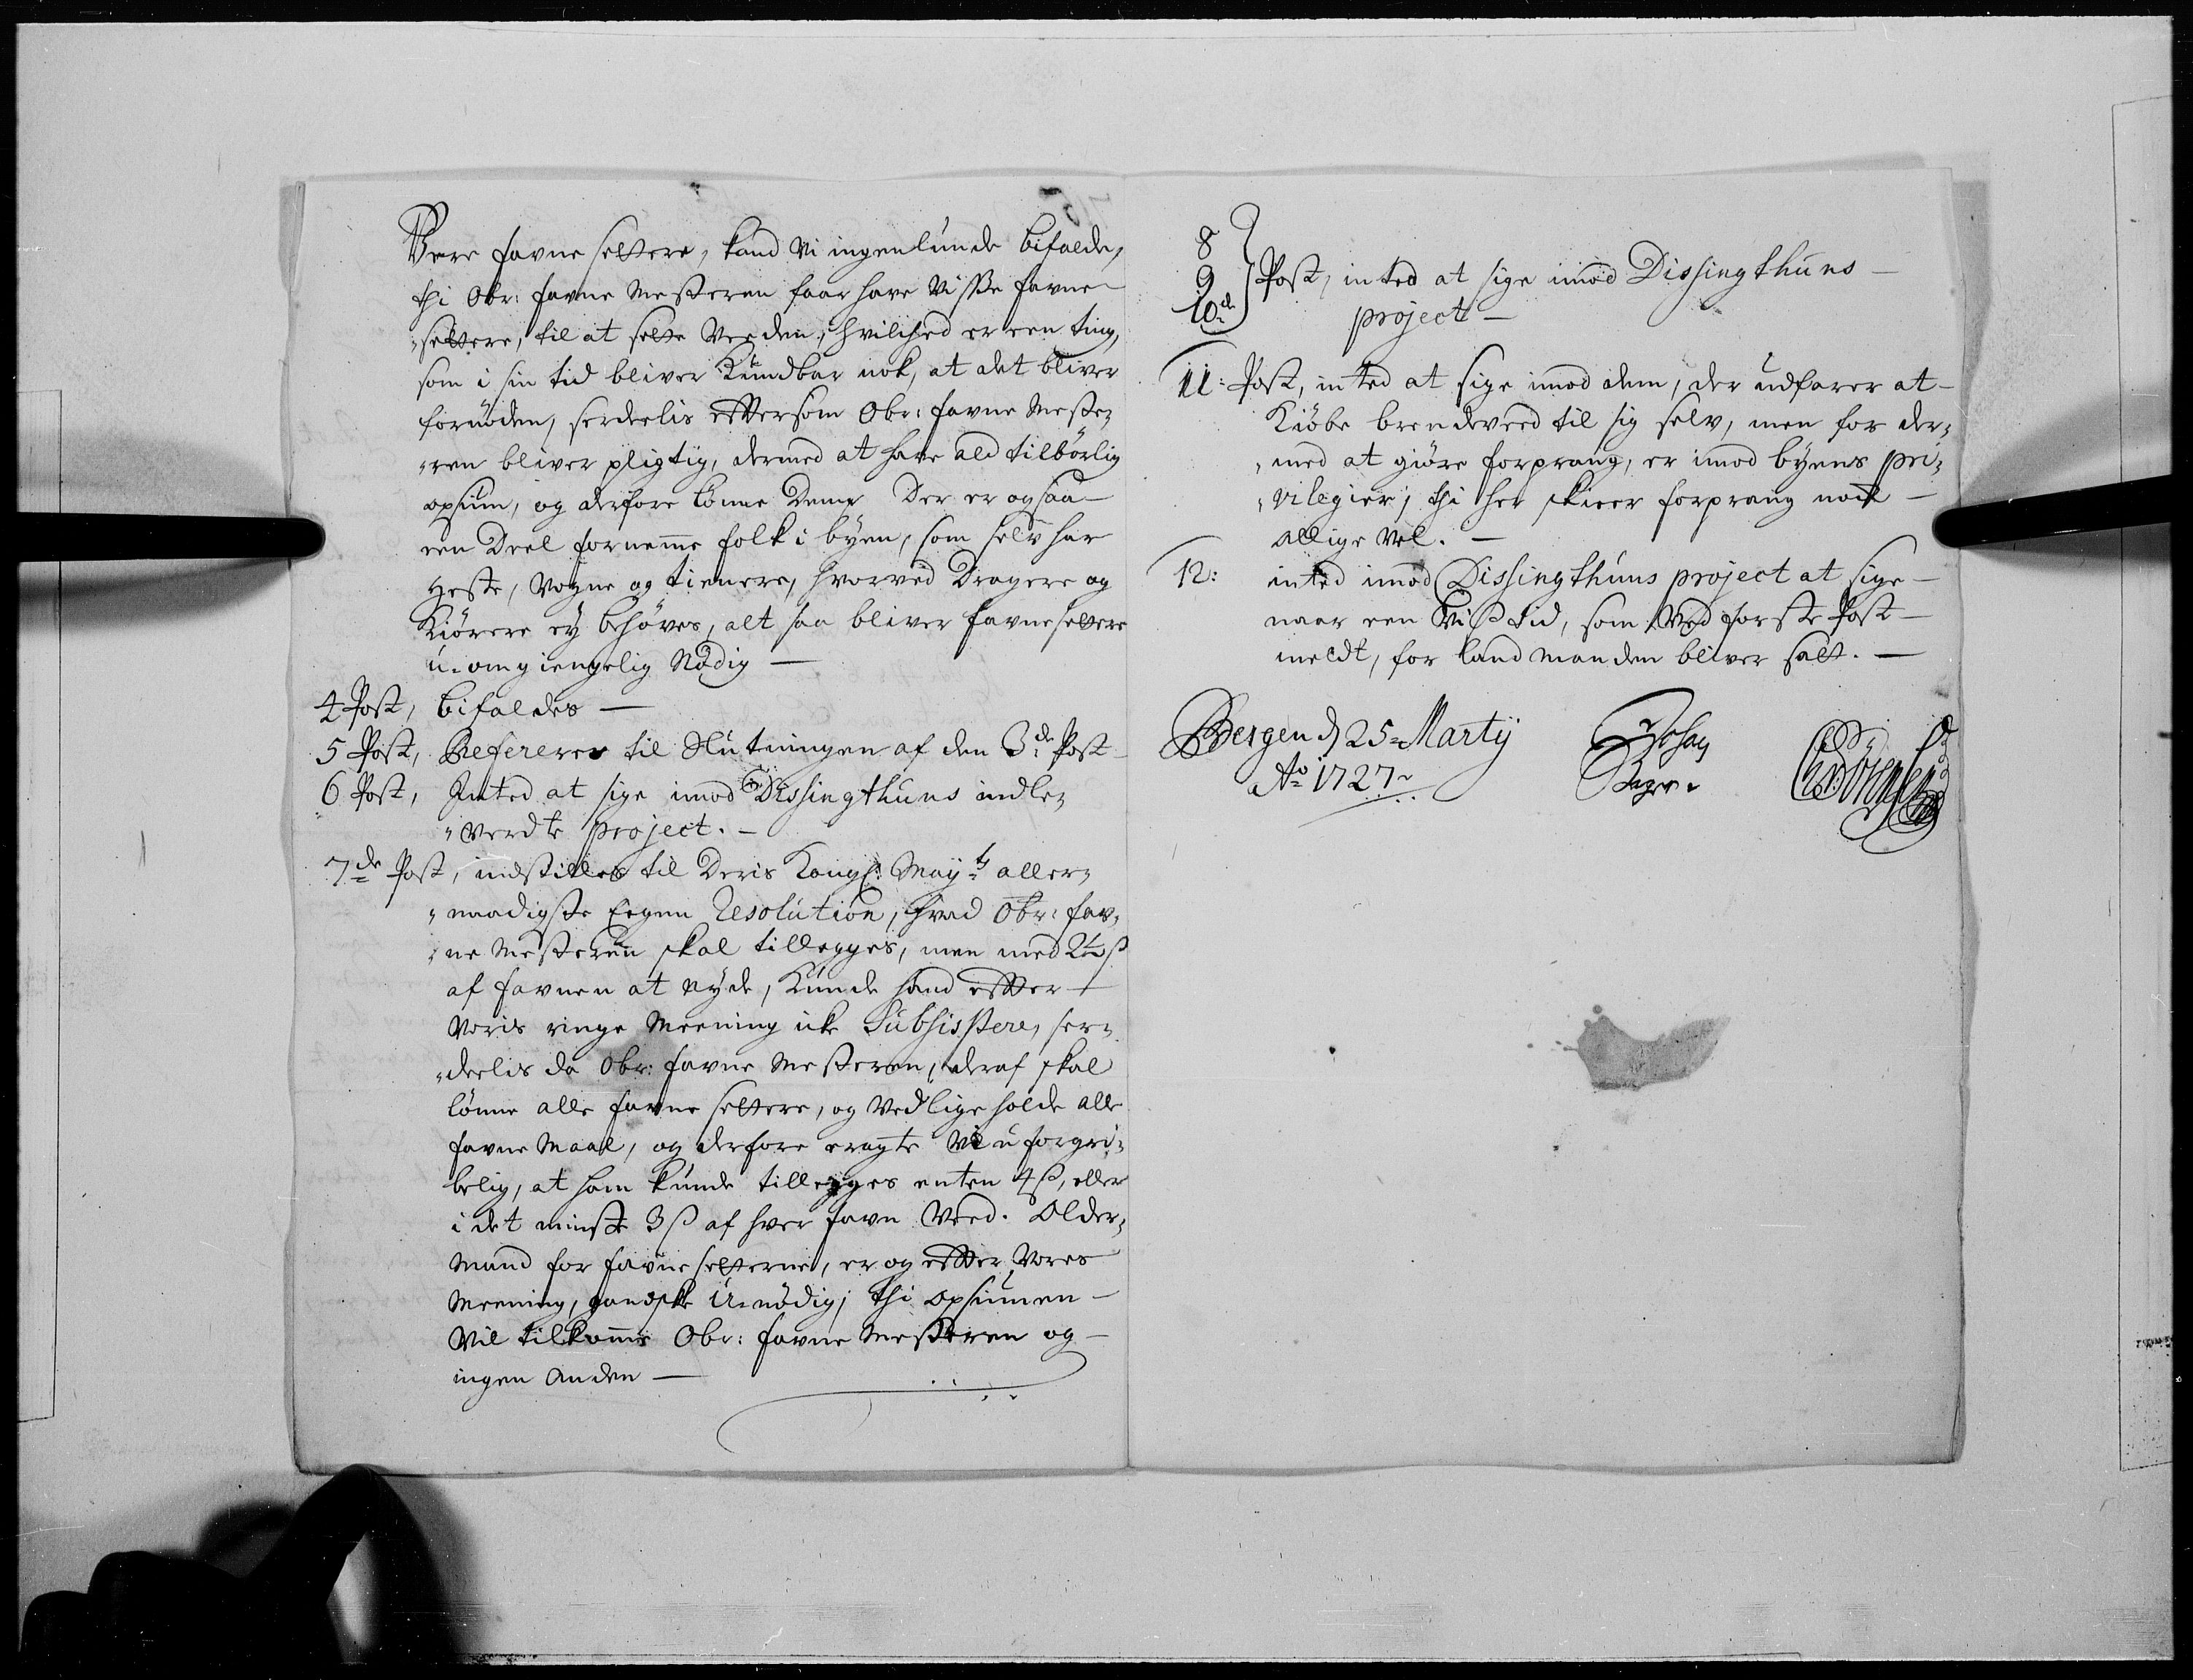 Være favne settere, kand vi ingenlunde bifalde,
thi Obr: favne Mesteren faar have visse favne-
"settere, til at sette Veeden, hvilched er een ting,
som i sin tid bliver kundbar nok, at det bliver
fornøden, serdeelis effter som Obr: favne Meste,,
"ren bliver pligtig, dermed at have ald tilbørlig
opsiun, og derfore lønne Dem Der er ogsaa -
een Deel fornemme folk i byen, som selv har
Heste, Vogne og tienere, hvorved Dragere og
Kiørere ey behøves, alt saa bliver favnesettere
u-omgiengelig Nødig -
4 Post, bifaldes -
5 Post, Refererer til Slutningen af den 3de Post -
6 Post, Inted at sige imod Dissingthuns indle,,
"verdte project. -
7de Post, indstilles til Deris Kongl: Mayts aller,,
"naadigste Eegen Resolution, hvad Obr: fav,,
"ne Mesteren skal tillegges, men med 2½ ß
af favnen at nyde, kunde hand effter -
voris ringe Meening icke Subsisstere, ser,,
"deelis da Obr: favne Mesteren, deraf skal
lønne alle favne settere, og Vedligeholde alle
favne Maal, og derfore eragte Vi uforgri,,
belig, at ham kunde tillegges enten 4 ß, eller
i det minste 3 ß af hver favn Veed. Older,,
Mand for favne setterne, er og effter Vores
Meening, gandske U-nødig; thi opsiunen -
Vil tilkomme Obr: favne Mesteren og -
ingen anden -
8
9 Post, inted at sige imod Dissingthuns -
10de project -
11: Post, inted at sige imod dem, der udfarer at -
Kiøbe brendeveed til sig selv, men for der,,
"med at giøre forprang, er imod byens pri,,
"vilegier; thi her skeer forprang nock -
allige vel. -
12: inted imod Dissingthuns project at sige -
naar een Viß tid, som ved første Post -
meldt, for land manden bliver satt. -
Bergen d 25 Martij
Ao 1727